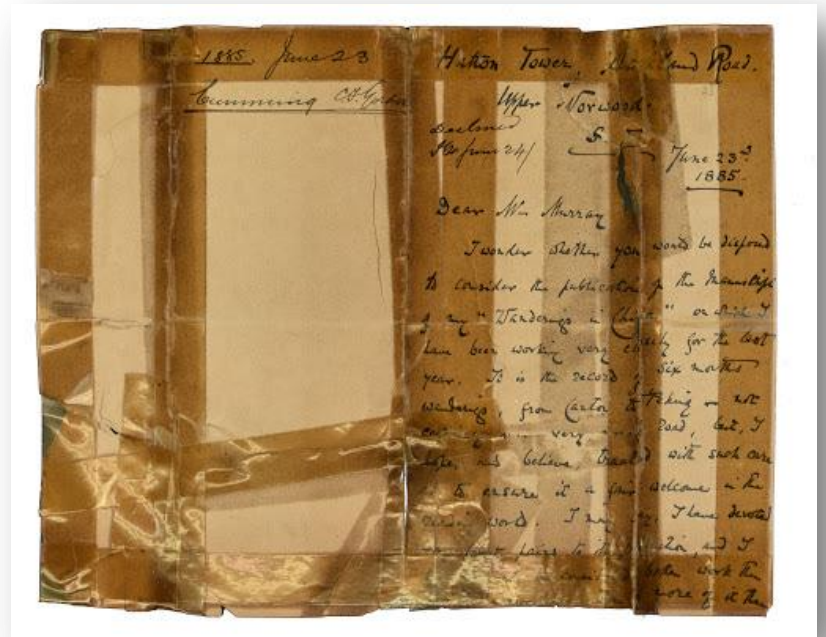 1885. June 23
Cumming C.F. Gordon
Hatton Tower, Road.
Upper Norwood.
Declined
June 24/
S.
June 23rd
1885.
Dear Mr Murray
I wonder whether you would be disposed
to consider the publication of the Manuscript
of my "Wanderings in China" on which I
have been working very for the last
year. It is the record of six months
wanderings, from Canton to Peking - not
very road, but, I
hope, and believe, treated with such care
to ensure it a fair welcome in the
world. I may say, I have devoted
pains to the and I
better work than
more of it than